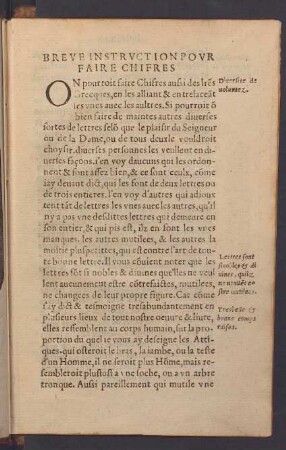 BREVE INSTRVCTION POVR
FAIRE CHIFRES
ON pourroit faire Chifres aussi des lr̃es
Grecques, en les alliant & entrelaceãt
les vnes auec les aultres. Si pourroit õ
bien faire de maintes autres diuerses
sortes de lettres selõ que le plaisir du Seigneur
ou de la Dame, ou de tous deux le vouldroit
choysir. diuerses personnes les veullent en di-
uerses façons. i'en voy daucuns qui les ordon-
nent & font assez bien, & ce sont ceulx, cõme
iay deuant dict, qui les font de deux lettres ou
de trois entieres. I'en voy d'autres qui adiou-
tent tãt de lettres les vnes auec les autres, qu'il
n'y a pas vne desdittes lettres qui demeure en
son entier, & qui pis est, ilz en font les vnes
manques, les autres mutilees, & les autres la
moitie plus petittes, qui est contre l'art de tou-
te bonne lettre. Il vous cõuient noter que les
lettres sõt si nobles & diuines qu'elles ne veul-
lent aucunement estre cõtrefaictes, mutilees,
ne changees de leur propre figure. Car cõme
i'ay dict & tesmoigne tresabundantement en
plusieurs lieux de tout nostre oeuure & liure,
elles ressemblent au corps humain, sur la pro-
portion du quel ie vous ay desseigne les Atti-
ques, qui osteroit le bras, la iambe, ou la teste
d'un Homme, il ne seroit plus Hõme, mais res-
sembleroit plustost a vne soche, ou a vn arbre
tronque. Aussi pareillement qui mutile vne
Diuersite de
voluntez.
Lettres sont
si nobles & di
uines, quilz
ne veulẽt es-
stre mutilees.
Tresbelle et
bonne compa
raison.